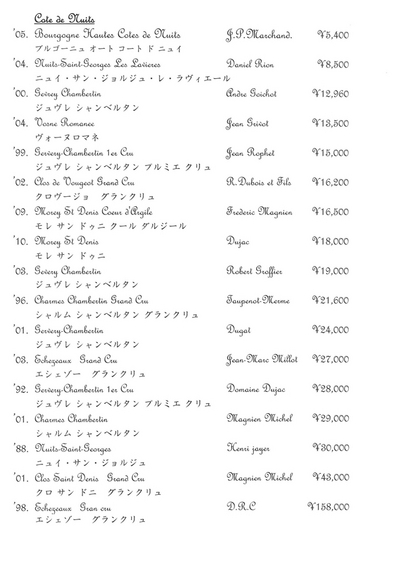 Cote de Nuits
'05. Bourgogne Hautes Cotes de Nuits J.P.Marchand. ¥5,400
ブルゴーニュ オート コート ド ニュイ
'04. Nuits-Saint-Georges Les Lavieres Daniel Rion ¥8,500
ニュイ・サン・ジョルジュ・レ・ラヴィエール
'00. Gevrey Chambertin Andre Goichot ¥12,960
ジュヴレ シャンベルタン
'04. Vosne Romanee Jean Grivot ¥13,500
ヴォーヌロマネ
'99. Gervery-Chambertin 1er Cru Jean Rophet ¥15,000
ジュヴレ シャンベルタン プルミエ クリュ
'02. Clos de Vougeot Grand Cru R.Dubois et Fils ¥16,200
クロヴージョ グランクリュ
'09. Morey St Denis Coeur d'Argile Frederic Magnien ¥16,500
モレ サン ドゥニ クール ダルジール
'10. Morey St Denis Dujac ¥18,000
モレ サン ドゥニ
'03. Gevery Chambertin Robert Groffier ¥19,000
ジュヴレ シャンベルタン
'96. Charmes Chambertin Grand Cru Taupenot-Merme ¥21,600
シャルム シャンベルタン グランクリュ
'01. Gervery-Chambertin Dugat ¥24,000
ジュヴレ シャンベルタン
'03. Echezeaux Grand Cru Jean-Marc Millot ¥27,000
エシェゾー グランクリュ
'92. Gervery-Chambertin 1er Cru Domaine Dujac ¥28,000
ジュヴレ シャンベルタン プルミエ クリュ
'01. Charmes Chambertin Magnien Michel ¥29,000
シャルム シャンベルタン
'88. Nuits-Saint-Georges Henri jayer ¥30,000
ニュイ・サン・ジョルジュ
'01. Clos Saint Denis Grand Cru Magnien Michel ¥43,000
クロ サン ドニ グランクリュ
'98. Echezeaux Gran cru D.R.C ¥158,000
エシェゾー グランクリュ